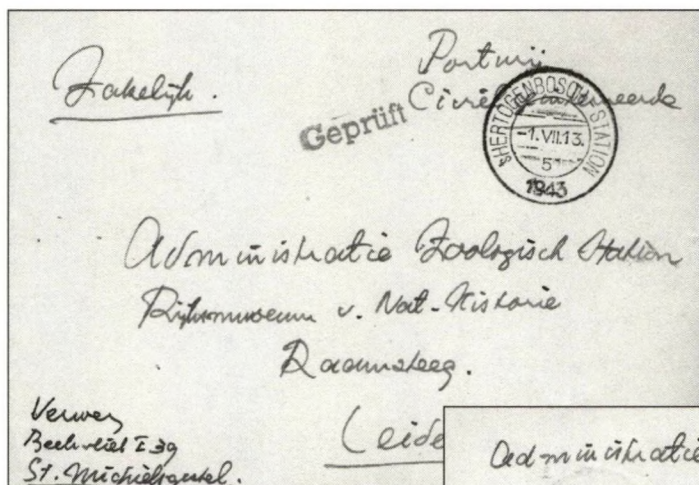 Zakelijk.
Portvrij
Civiel geïnterneerde
Geprüft
'SHERTOGENBOSCH STATION
-1.VII.13.
5
1943
Administratie Zoologisch Station
Rijksmuseum v. Nat-Historie
Raamsteeg.
Leide
Verwey
Beekvliet I 39
St. Michielsgestel.
Administratie